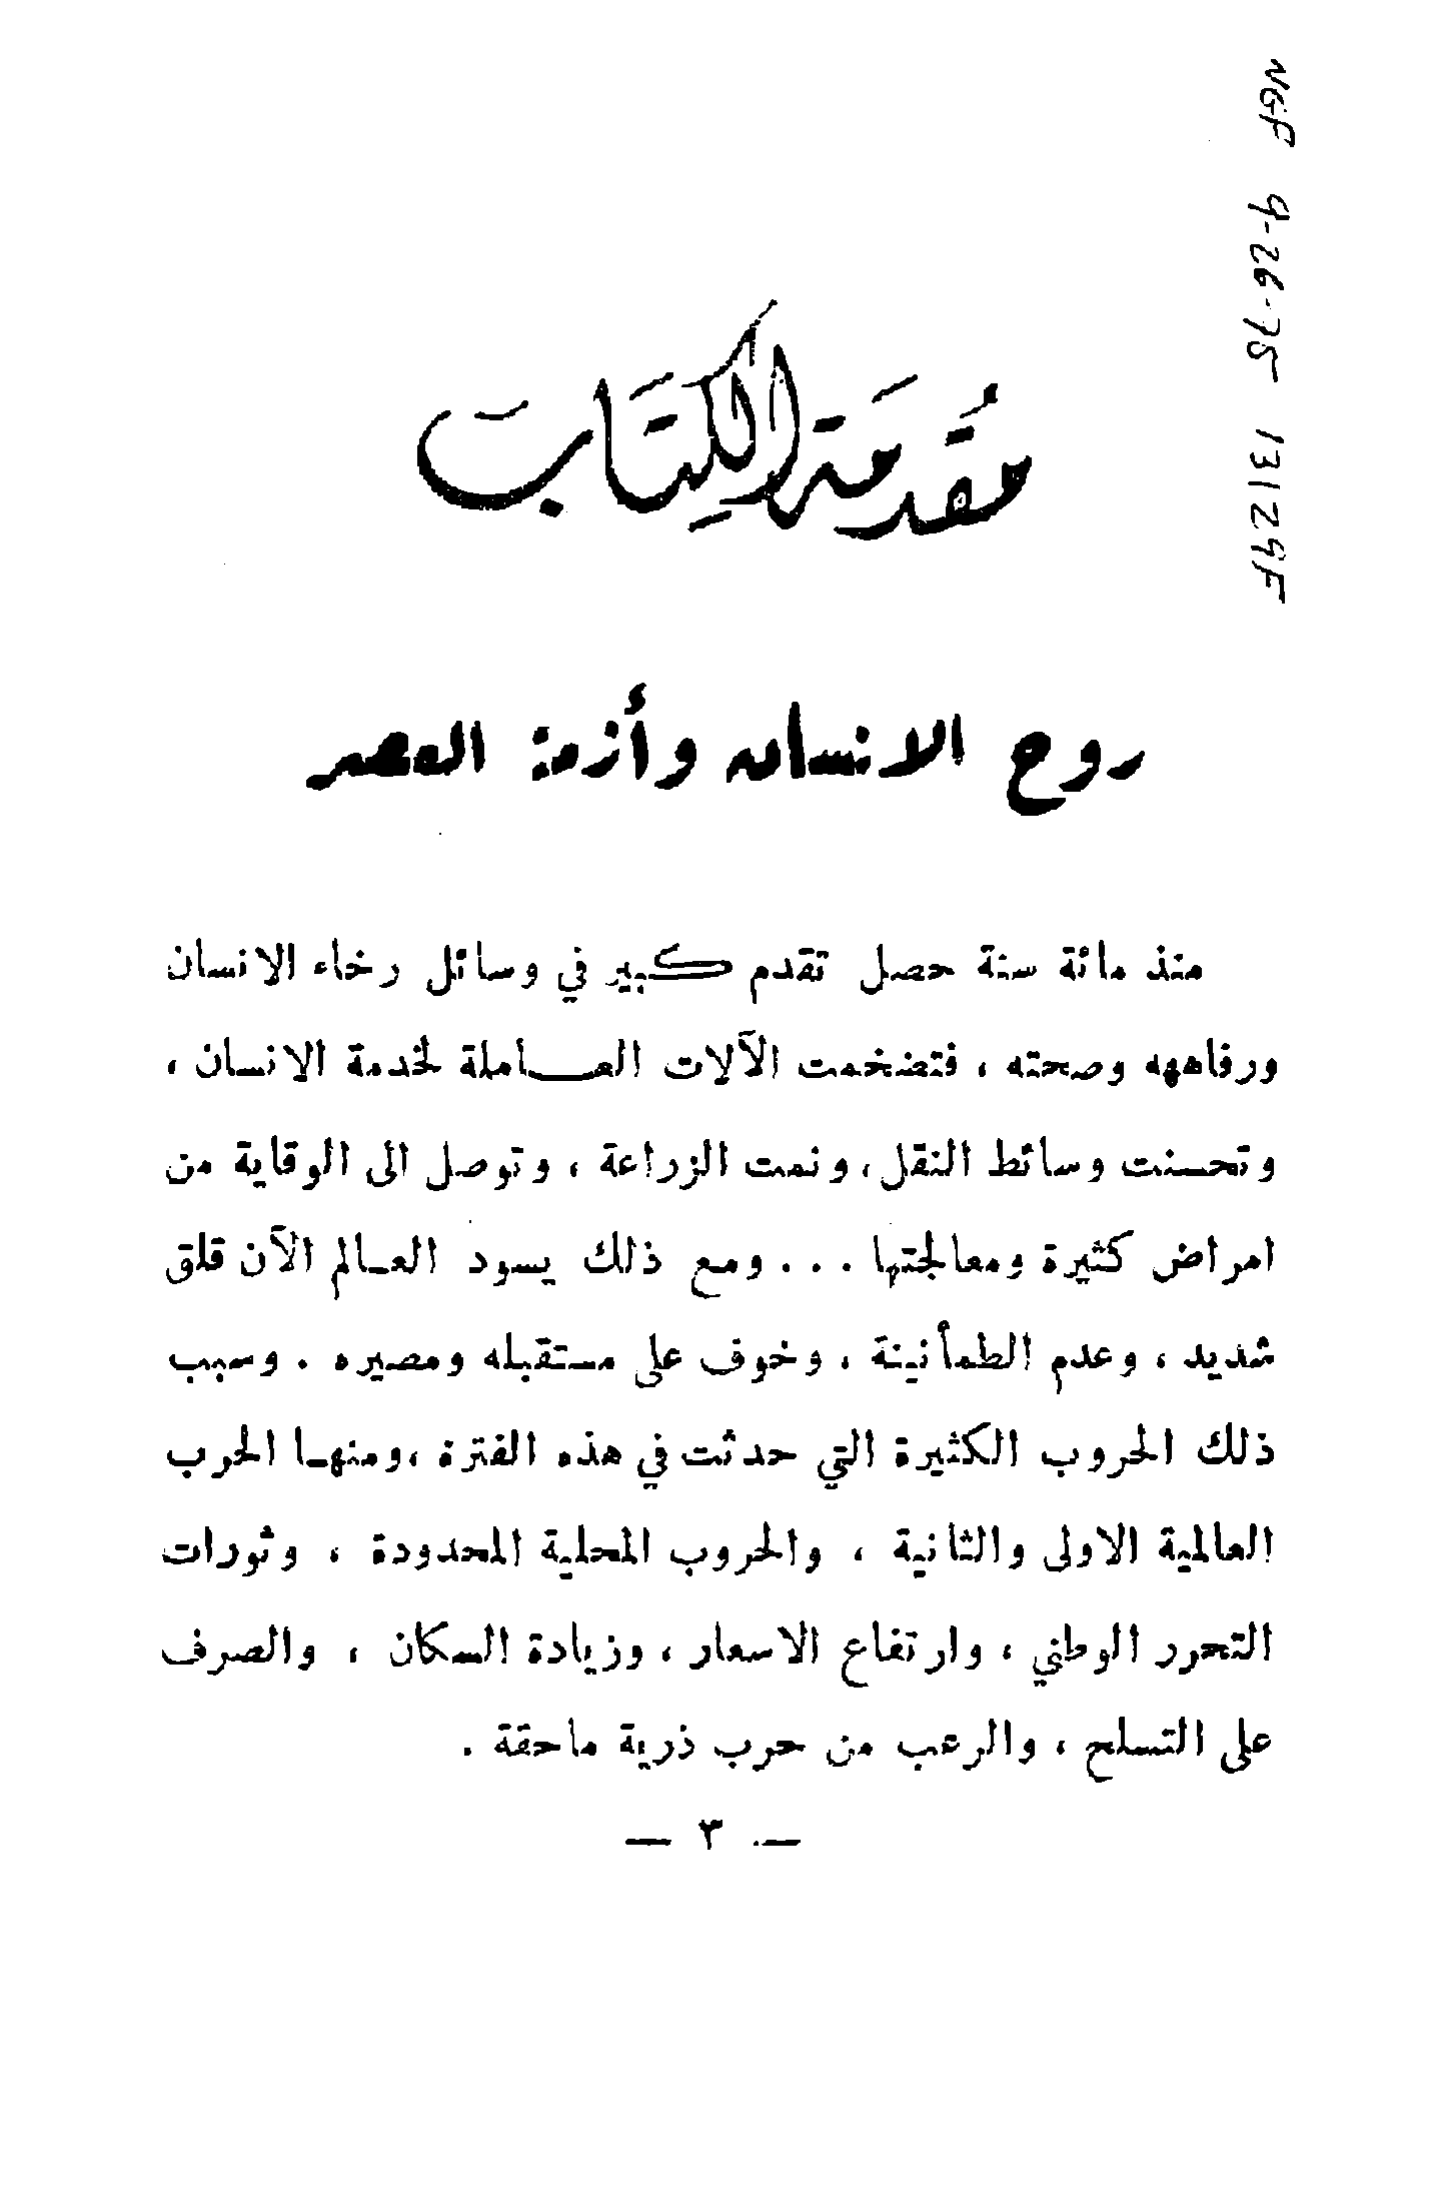 NGF 9-26-75 13129F
مُقَدِمَة الكِتَاب
روح الانسان وأزمة العصر
منذ مائة سنة حصل تقدم كبير في وسائل رخاء الانسان
ورفاهه وصحته ، فتضخمت الآلات العــاملة لخدمة الانسان ،
وتحسنت وسائط النقل ، ونمت الزراعة ، وتوصل الى الوقاية من
امراض كثيرة ومعالجتها ... ومع ذلك يسود العـالم الآن قلق
شديد ، وعدم الطمأنينة ، وخوف على مستقبله ومصيره . وسبب
ذلك الحروب الكثيرة التي حدثت في هذه الفترة ، ومنهـا الحرب
العالمية الاولى والثانية ، والحروب المحلية المحدودة ، وثورات
التحرر الوطني ، وارتفاع الاسعار ، وزيادة السكان ، والصرف
على التسلح ، والرعب من حرب ذرية ماحقة .
— ٣ —